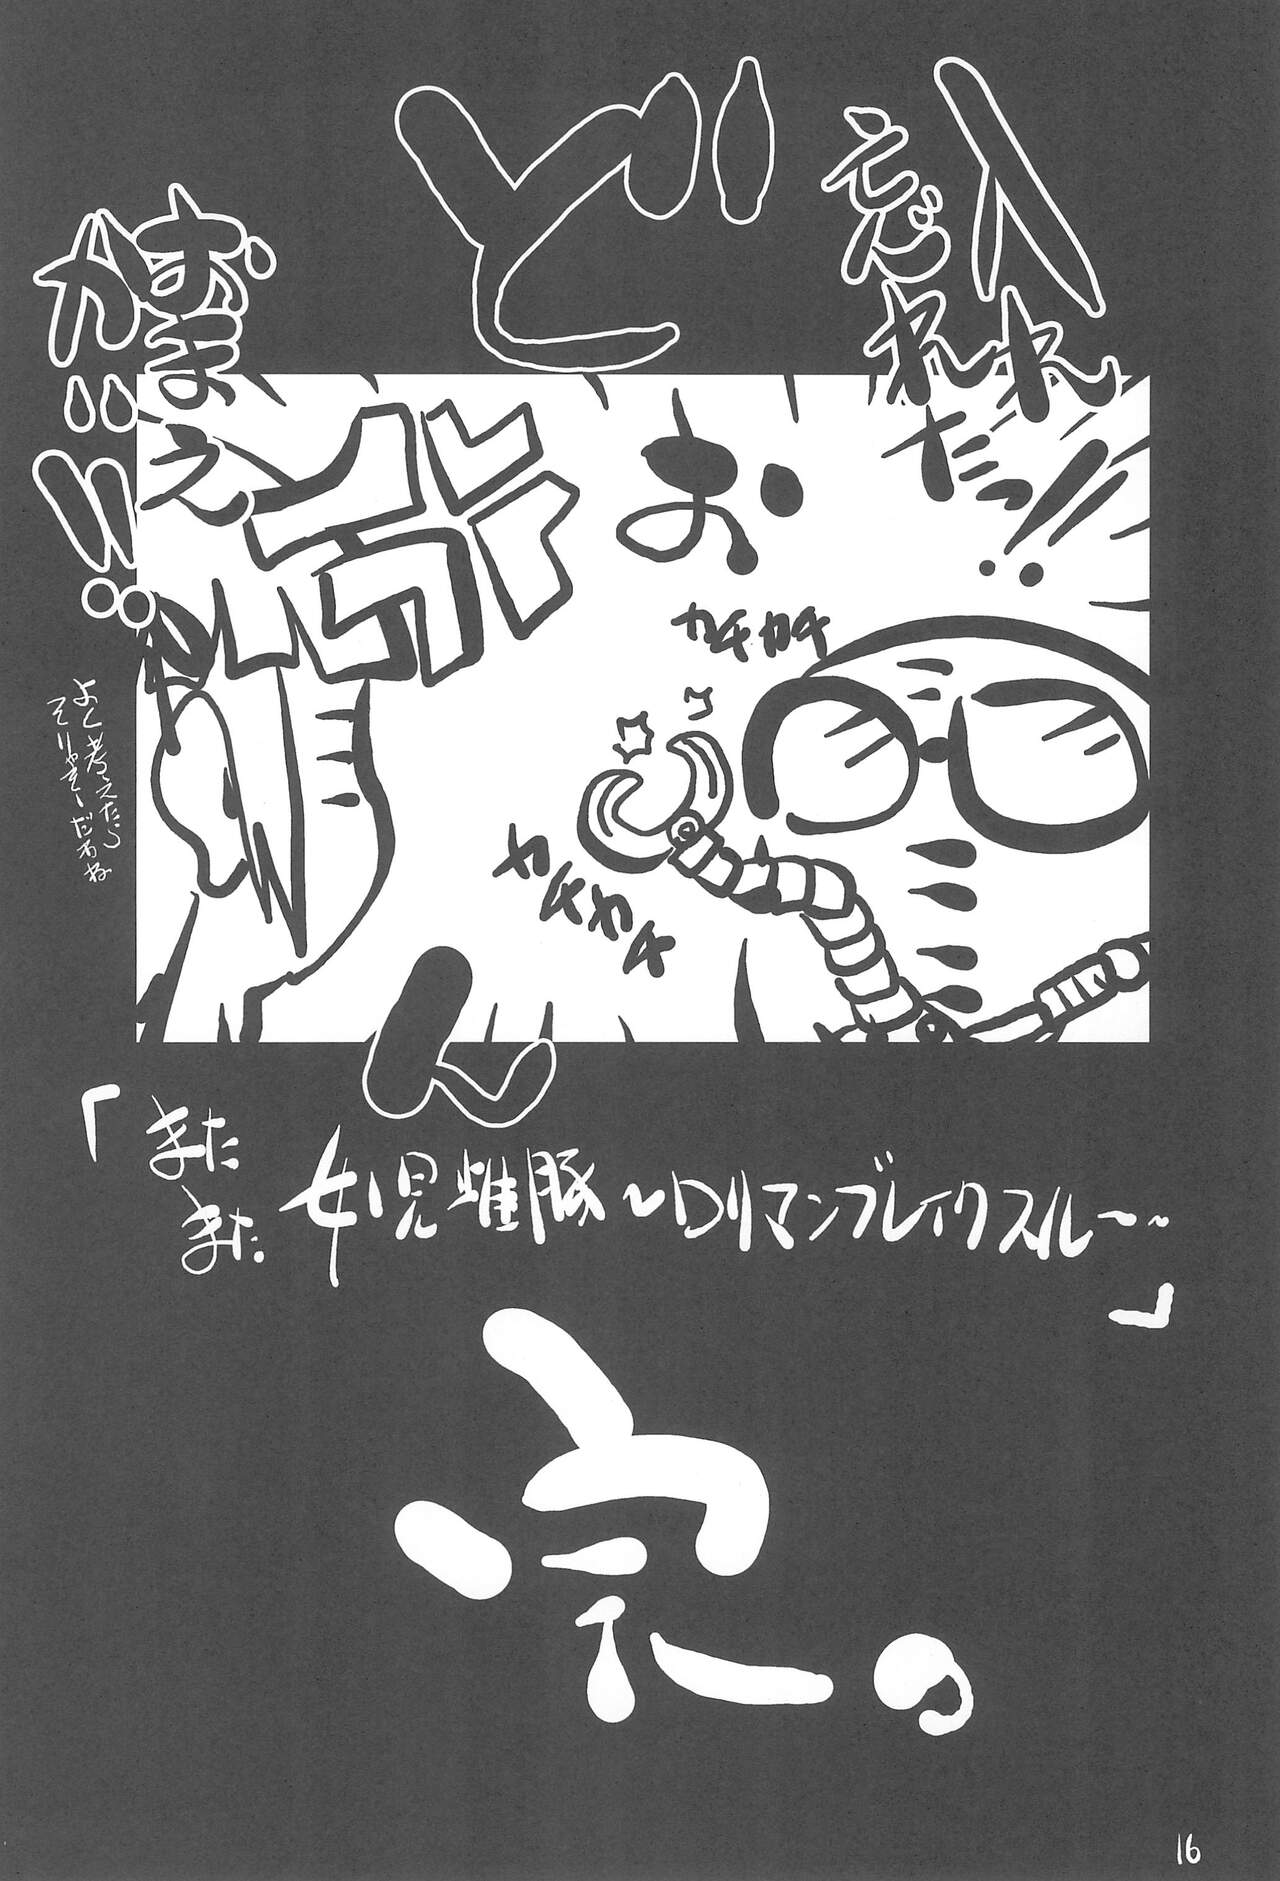 入れ
れ
だっ!!
ど
お
ん
おまえ
か゛!!
よく考えたら
そりゃそーだわね
カチカチ
カチカチ
「またまた
女児雌豚〜Dリマンブレイクスル〜〜
」
の
16